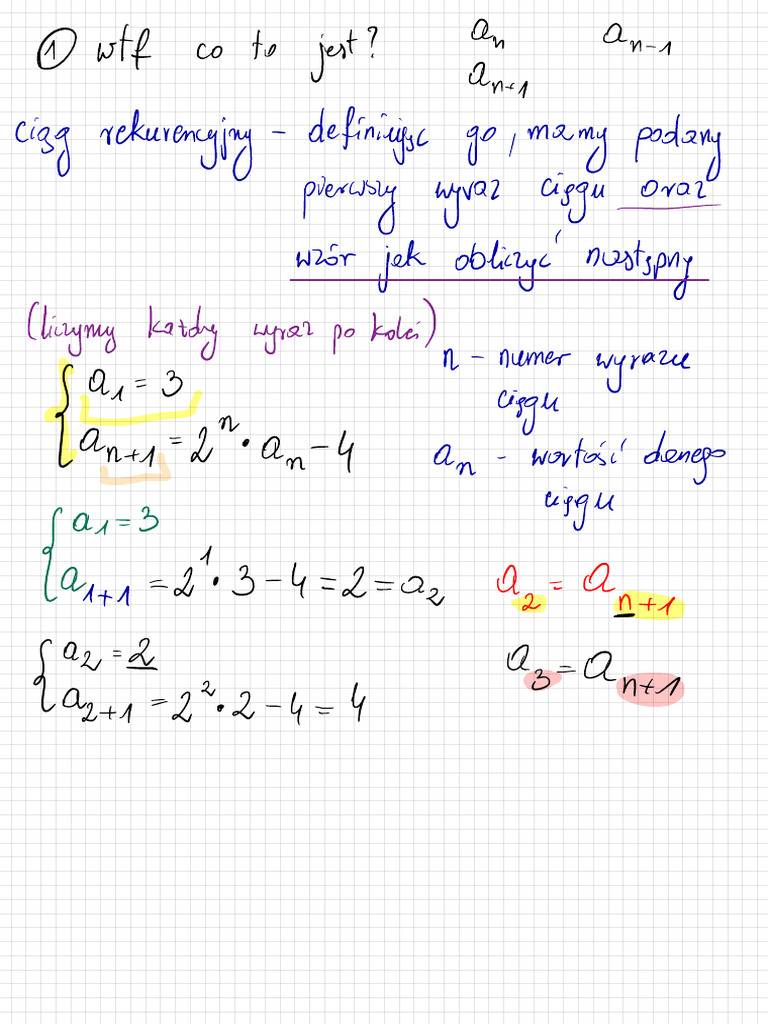 ① wtf co to jest? aₙ aₙ₋₁
aₙ₊₁
ciąg rekurencyjny – definiując go, mamy podany
pierwszy wyraz ciągu oraz
wzór jak obliczyć następny
(liczymy każdy wyraz po kolei)
n – numer wyrazu
ciągu
a₁ = 3
aₙ₊₁ = 2ⁿ · aₙ – 4
aₙ – wartość danego
ciągu
a₁ = 3
a₁₊₁ = 2¹ · 3 – 4 = 2 = a₂
a₂ = aₙ₊₁
a₂ = 2
a₂₊₁ = 2² · 2 – 4 = 4
a₃ = aₙ₊₁